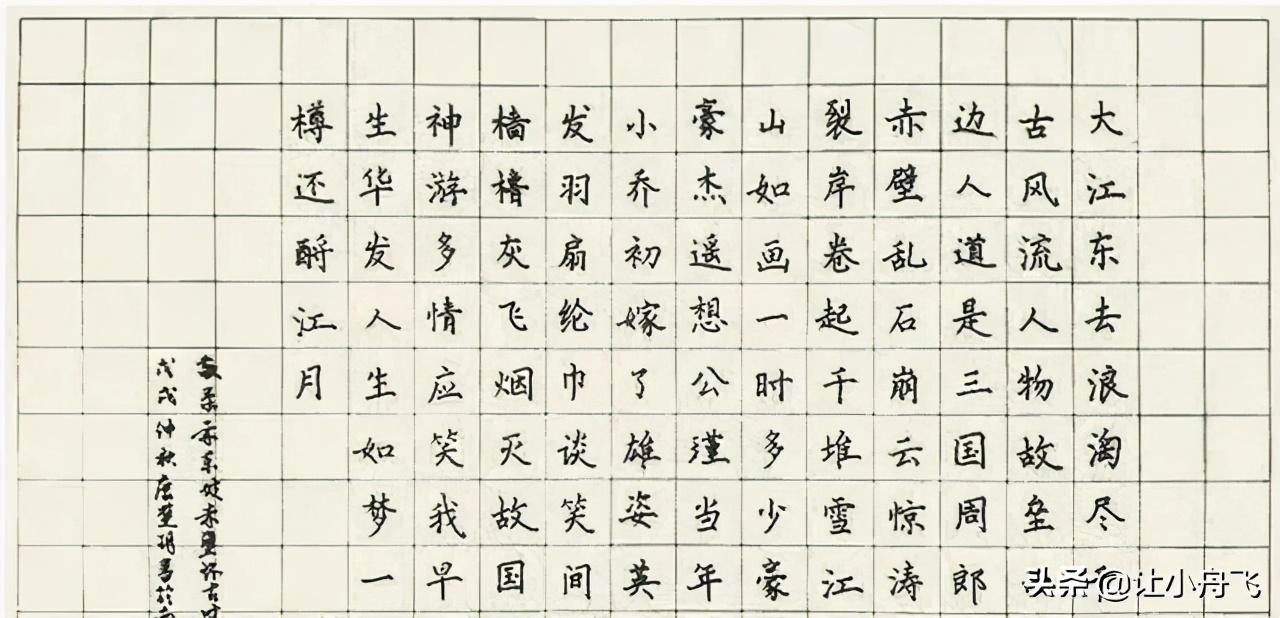 大江东去浪淘尽
古风流人物故垒
边人道是三国周郎
赤壁乱石崩云惊涛
裂岸卷起千堆雪江
山如画一时多少豪
豪杰遥想公瑾当年
小乔初嫁了雄姿英
发羽扇纶巾谈笑间
樯橹灰飞烟灭故国
神游多情应笑我早
生华发人生如梦一
樽还酹江月
怀古
戊戌仲秋唐楚书於
头条@让小舟飞